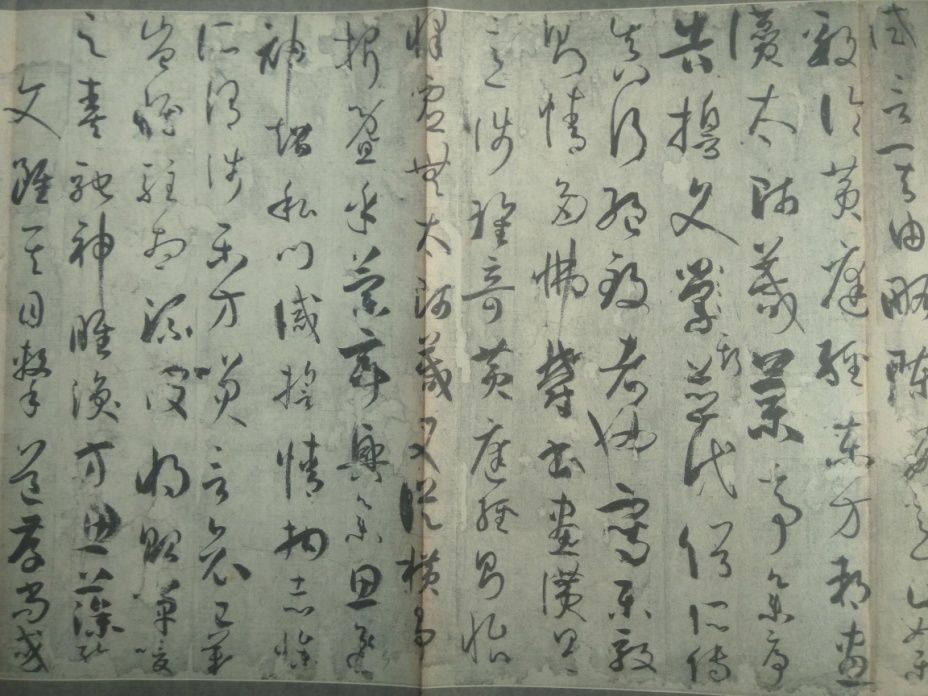 試言其由略陳數意止如樂
毅論黃庭經東方朔畫
讚太師箴蘭亭集序
告誓文斯並代俗所傳
真行絕致者也寫樂毅
則情多怫鬱書畫讚則
意涉瑰奇黃庭經則怡
懌虛無太師箴又縱橫爭
折暨乎蘭亭興集思逸
神超私門誡誓情拘志慘
所謂涉樂方笑言哀已歎
豈惟駐想流波將貽嘽喛
之奏馳神睢渙方思藻繪
文雖其目擊道存尚或